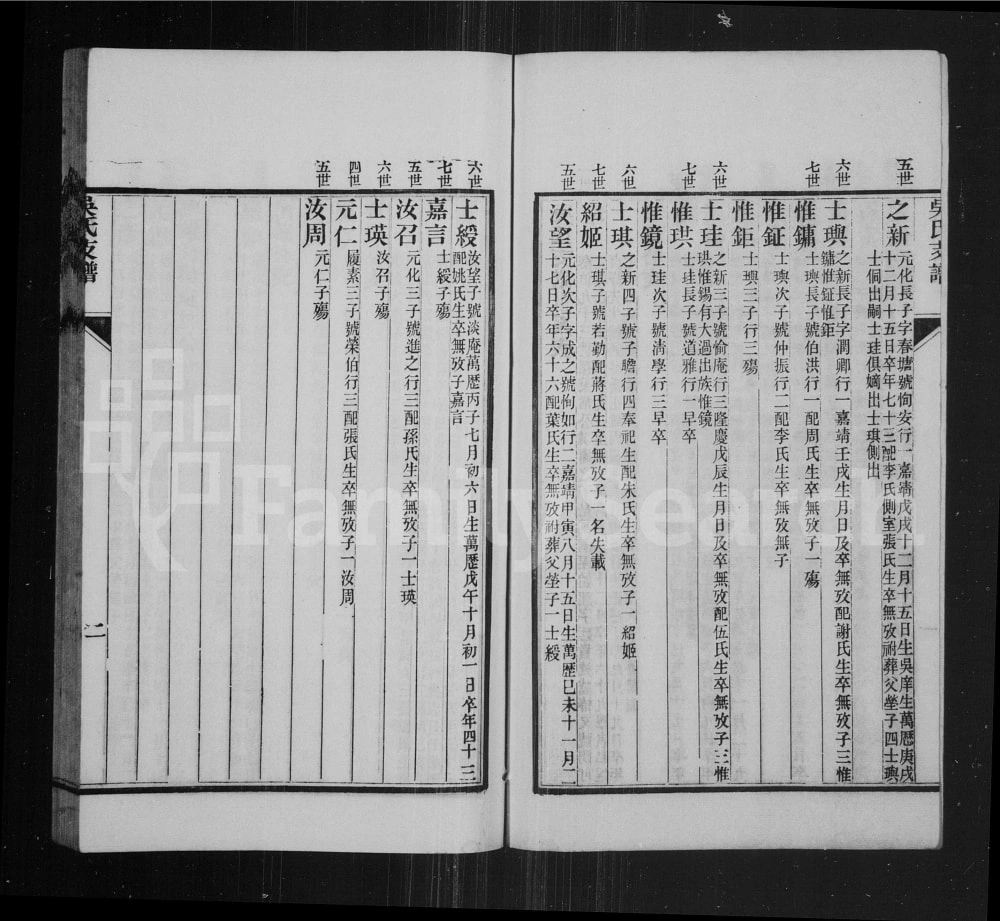 吳氏支譜
五世
之新
元化長子字春塘號恂安行一嘉靖戊戌十二月十五日生吳庠生萬歷庚戌
十二月十五日卒年七十三配李氏側室張氏生卒無攷祔葬父塋子四士璵
士侗出嗣士珪俱嫡出士琪側出
六世
士璵
之新長子字潤卿行一嘉靖壬戌生月日及卒無攷配謝氏生卒無攷子三惟
鏞惟鉦惟鉅
七世
惟鏞
士璵長子號伯洪行一配周氏生卒無攷子一殤
惟鉦
士璵次子號仲振行二配李氏生卒無攷無子
惟鉅
士璵三子行三殤
六世
士珪
之新三子號愉庵行三隆慶戊辰生月日及卒無攷配伍氏生卒無攷子三惟
珙惟錫有大過出族惟鏡
七世
惟珙
士珪長子號道雅行一早卒
惟鏡
士珪次子號淸學行三早卒
六世
士琪
之新四子號子瞻行四奉祀生配朱氏生卒無攷子一紹姬
七世
紹姬
士琪子號若勤配蔣氏生卒無攷子一名失載
五世
汝望
元化次子字成之號恂如行二嘉靖甲寅八月十五日生萬歷己未十一月二
十七日卒年六十六配葉氏生卒無攷祔葬父塋子一士綬
六世
士綬
汝望子號淡庵萬歷丙子七月初六日生萬歷戊午十月初一日卒年四十三
配姚氏生卒無攷子嘉言
七世
嘉言
士綬子殤
五世
汝召
元化三子號進之行三配孫氏生卒無攷子一士瑛
六世
士瑛
汝召子殤
四世
元仁
履素三子號榮伯行三配張氏生卒無攷子一汝周
五世
汝周
元仁子殤
吳氏支譜
二
FamilySearch